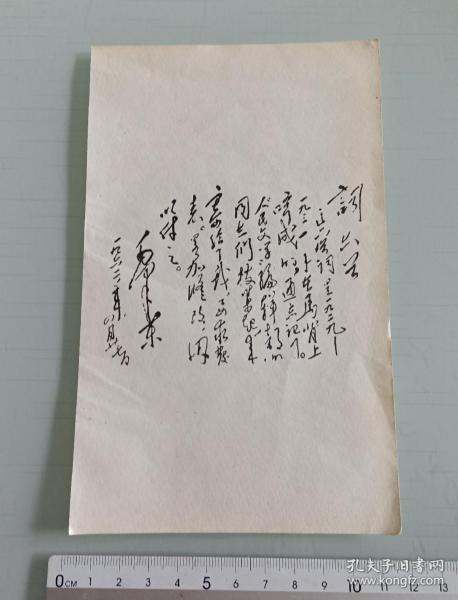 詞六首
这六首词,是一九二九—
一九三一年在馬背上
哼成的,通忘記了。
人民文学编辑部的
同志们搜集起来
寄给了我,要求发
表。略加修改,因
以付之。
毛泽东
一九六二年四月廿七日
0CM 1 2 3 4 5 6 7 8 9 10 11 12 13
孔夫子旧书网
kongfz.com